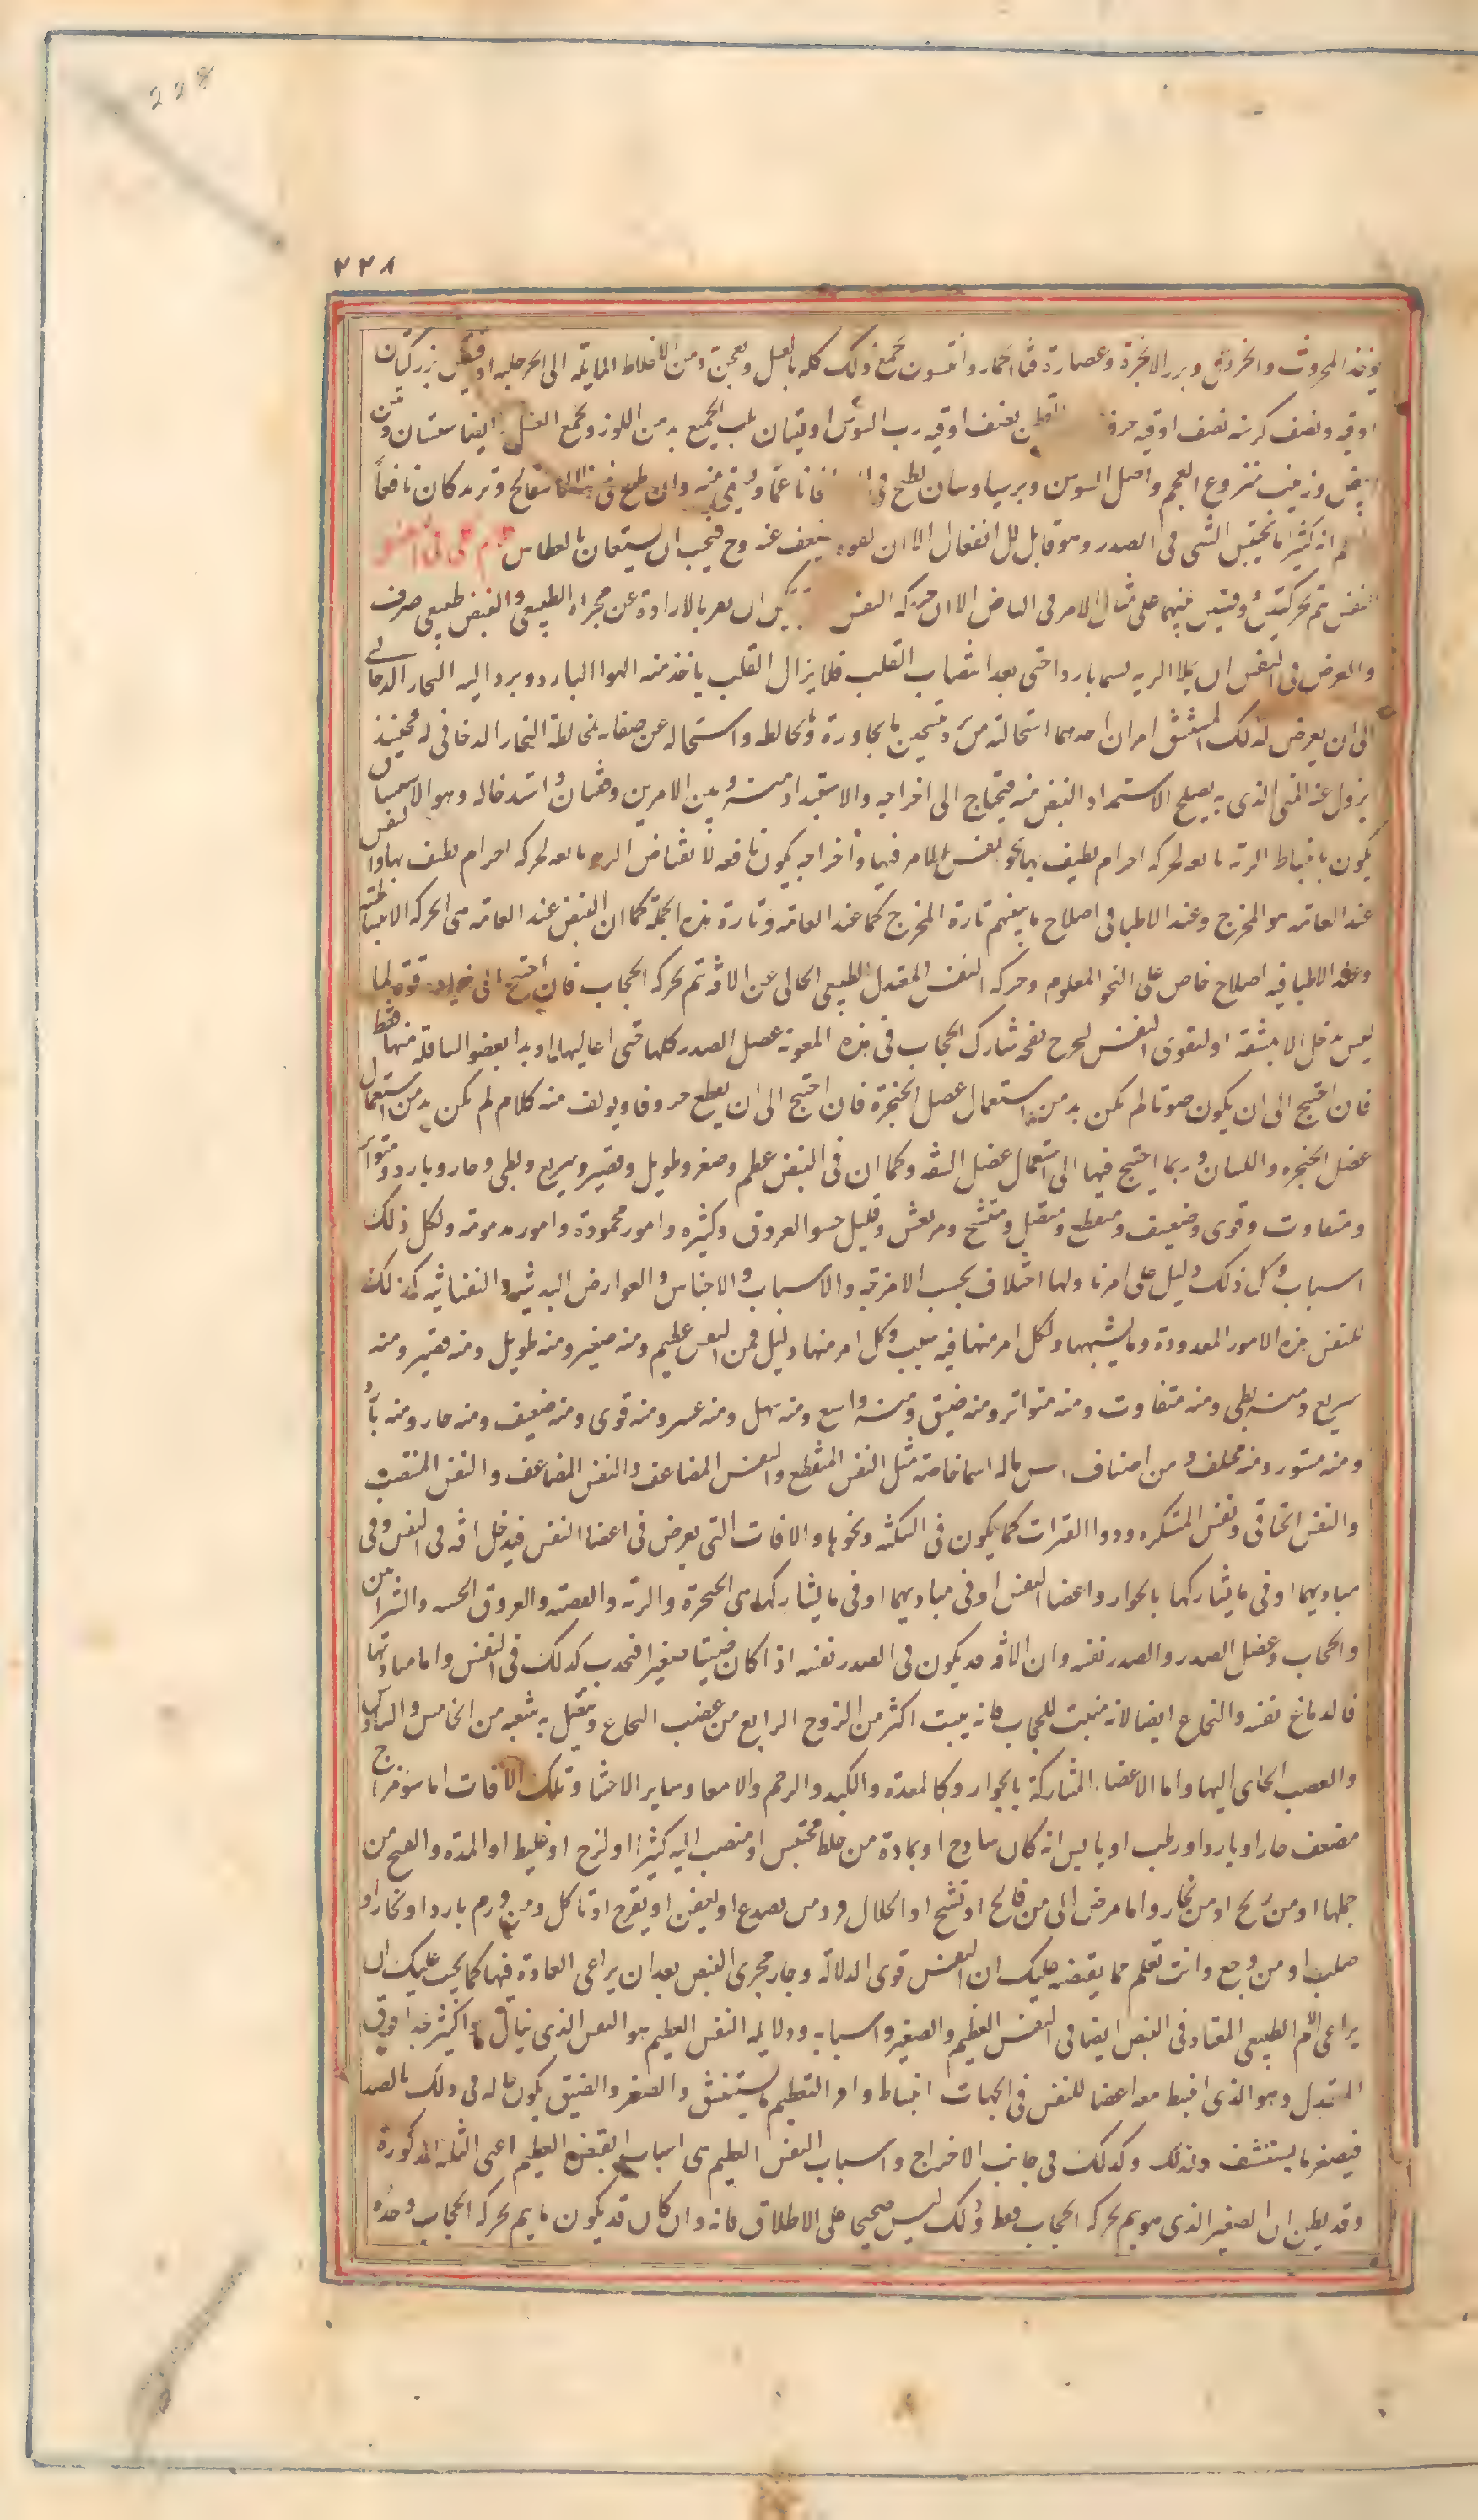 228
۲۲۸
يوخذ المحروث والخردل وبزر الانجرة وعصارة قثا الحمار وانيسون يجمع ذلك كله بالعسل ويعجن ومن الاخلاط المايله الى الحر حلبه اوقيتين بزر كتان
اوقيه ونصف كرسنه نصف اوقيه نصف اوقيه رب السوس اوقيتان يلت الجميع بدهن اللوز ويجمع العسل ايضا
وزبيب منزوع العجم واصل السوس وبرسياوسان يطبخ فى وان طبخ فى وتربد كان نافعاً
انه كثيرا ما يحتبس الشى فى الصدر وهو قابل للانفعال الا ان القوه تضعف عنه وح فيجب ان يستعان بالعطاس
النفس يتم بحركتين ووقفتين بينهما على مثال الامر فى النبض الا ان حركه النفس يمكن ان بالارادة عن مجراه الطبيعى والنبض طبيعى صرف
والغرض فى النفس ان يملا الريه نسيما باردا حتى يعد لنبضات القلب فلا يزال القلب ياخذ منه الهوا البارد ويرد اليه البخار الدخانى
الى ان يعرض لذلك المستنشق امران احدهما استحالته من برده بتسخين ما يجاوره وما يخالطه واستحاله عن صفايه لمخالطة البخار الدخانى له فحينئذ
يزول عنه المعنى الذى به يصلح لاستمداد النبض منه فيحتاج الى اخراجه والاستبداد منه وبين الامرين وقفتان واستدخاله وهو الاستنشاق
يكون بانبساط الريه تابعه لحركه اجرام يطيف بها نحو لعسر الامر فيها واخراجه يكون بانقباض الريه تابعه لحركه اجرام يطيف بها والنفس
عند العامه هو المخرج وعند الاطبا فى اصطلاح ما بينهم تارة المخرج كما عند العامه وتارة هذه الجملة كما ان النبض عند العامه هى الحركه الانبساطيه
وعند الاطبا فيه اصطلاح خاص على النحو المعلوم وحركه النفس المعتدل الطبيعى الخالى عن الافة يتم بحركه الحجاب فان احتيج الى زيادة قوة لما
ليس يدخل الا بمشقه او ليقوى النفس ليخرج نفخه شارك الحجاب فى هذه المعونه عضل الصدر كلها حتى اعاليها او بد ابعض السافله منها فقط
فان احتيج الى ان يكون صوتا لم يكن بد من استعمال عضل الحنجرة فان احتيج الى ان يقطع حروفا ويولف منه كلام لم يكن بد من استعمال
عضل الحنجره واللسان وربما احتيج فيها الى استعمال عضل الشفه وكما ان فى النبض عظيم وصغير وطويل وقصير وسريع وبطى وحار وبارد ومتواتر
ومتفاوت وقوى وضعيف ومنقطع ومتصل ومتشنج ومرتعش وقليل حشو العروق وكثيره وامور محمودة وامور مذمومة ولكل ذلك
اسباب وكل ذلك دليل على امر ما ولها اختلاف بحسب الامزجه والاسباب والاجناس والعوارض البدنيه والنفسانيه كذلك
للنفس هذه الامور المعدودة وما يشبهها ولكل امر منها فيه سبب وكل امر منها دليل فمن النفس عظيم ومنه صغير ومنه طويل ومنه قصير ومنه
سريع ومنه بطى ومنه متفاوت ومنه متواتر ومنه ضيق ومنه واسع ومنه سهل ومنه عسر ومنه قوى ومنه ضعيف ومنه حار ومنه بارد
ومنه مستور ومنه مختلف ومن اصناف ما له اسما خاصة مثل النفس المنقطع والنفس المضاعف والنفس المضاعف والنفس المنتصب
والنفس الخناقى ونفس المتكره وذوا الفترات كما يكون فى السكته ونحوها والافات التى يعرض فى اعضا النفس فيدخل افه فى النفس وفى
مباديهما او فى ما يشاركها بالجوار واعضا النفس او فى مباديهما او فى ما يشاركهما هى الحنجرة والريه والقصبه والعروق الخشنه والشرائين
والحجاب وعضل الصدر والصدر نفسه وان الافه قد يكون فى الصدر نفسه اذا كان ضيقا صغيرا فيحدث كذلك فى النفس واما مباديها
فالدماغ نفسه والنخاع ايضا لانه منبت للحجاب فانه ينبت اكثره من الزوج الرابع من عصب النخاع ويتصل به شعبه من الخامس والسادس
والعصب الجاى اليها واما الاعضاء المشاركة بالجوار وكالمعدة والكبد والرحم والامعا وساير الاحشا وتلك الافات اما سو مزاج
مضعف حارا وباردا ورطب او يابس انه كان ساذج او بمادة من خلط محتبس او منصب اليه كثيرا او لزج او غليظ او المدة والقيح من
جملتها او من ريح او من بخار واما مرض الى من فالج او تشنج او انحلال فرد من تصدع او تعفن او تقرح او تاكل ومن ورم بارد او حار او
صلب او من وجع وانت تعلم مما يقتضيه عليك ان النفس قوى الدلالة وجار مجرى النبض بعد ان يراعى العادة فيها كما يجب عليك ان
يراعى الامر الطبيعى المعتاد فى النبض ايضا فى النفس العظيم والصغير واسبابه ودلايله النفس العظيم هو النفس الذى ينال هوا كثير جدا فوق
المعتدل وهو الذى انبسط معه اعضا للنفس فى الجهات انبساط وافر التعظيم ما يستنشق والصغير والضيق يكون حاله فى ذلك بالضد
فيصغر ما يستنشق وذلك وكذلك فى جانب الاخراج واسباب النفس العظيم هى اسباب النبض العظيم اعنى الثلثه المذكورة
وقد يظن ان الصغير الذى هو يتم بحركه الحجاب فقط وذلك ليس صحيحا على الاطلاق فانه وان كان قد يكون ما يتم بحركه الحجاب وحده